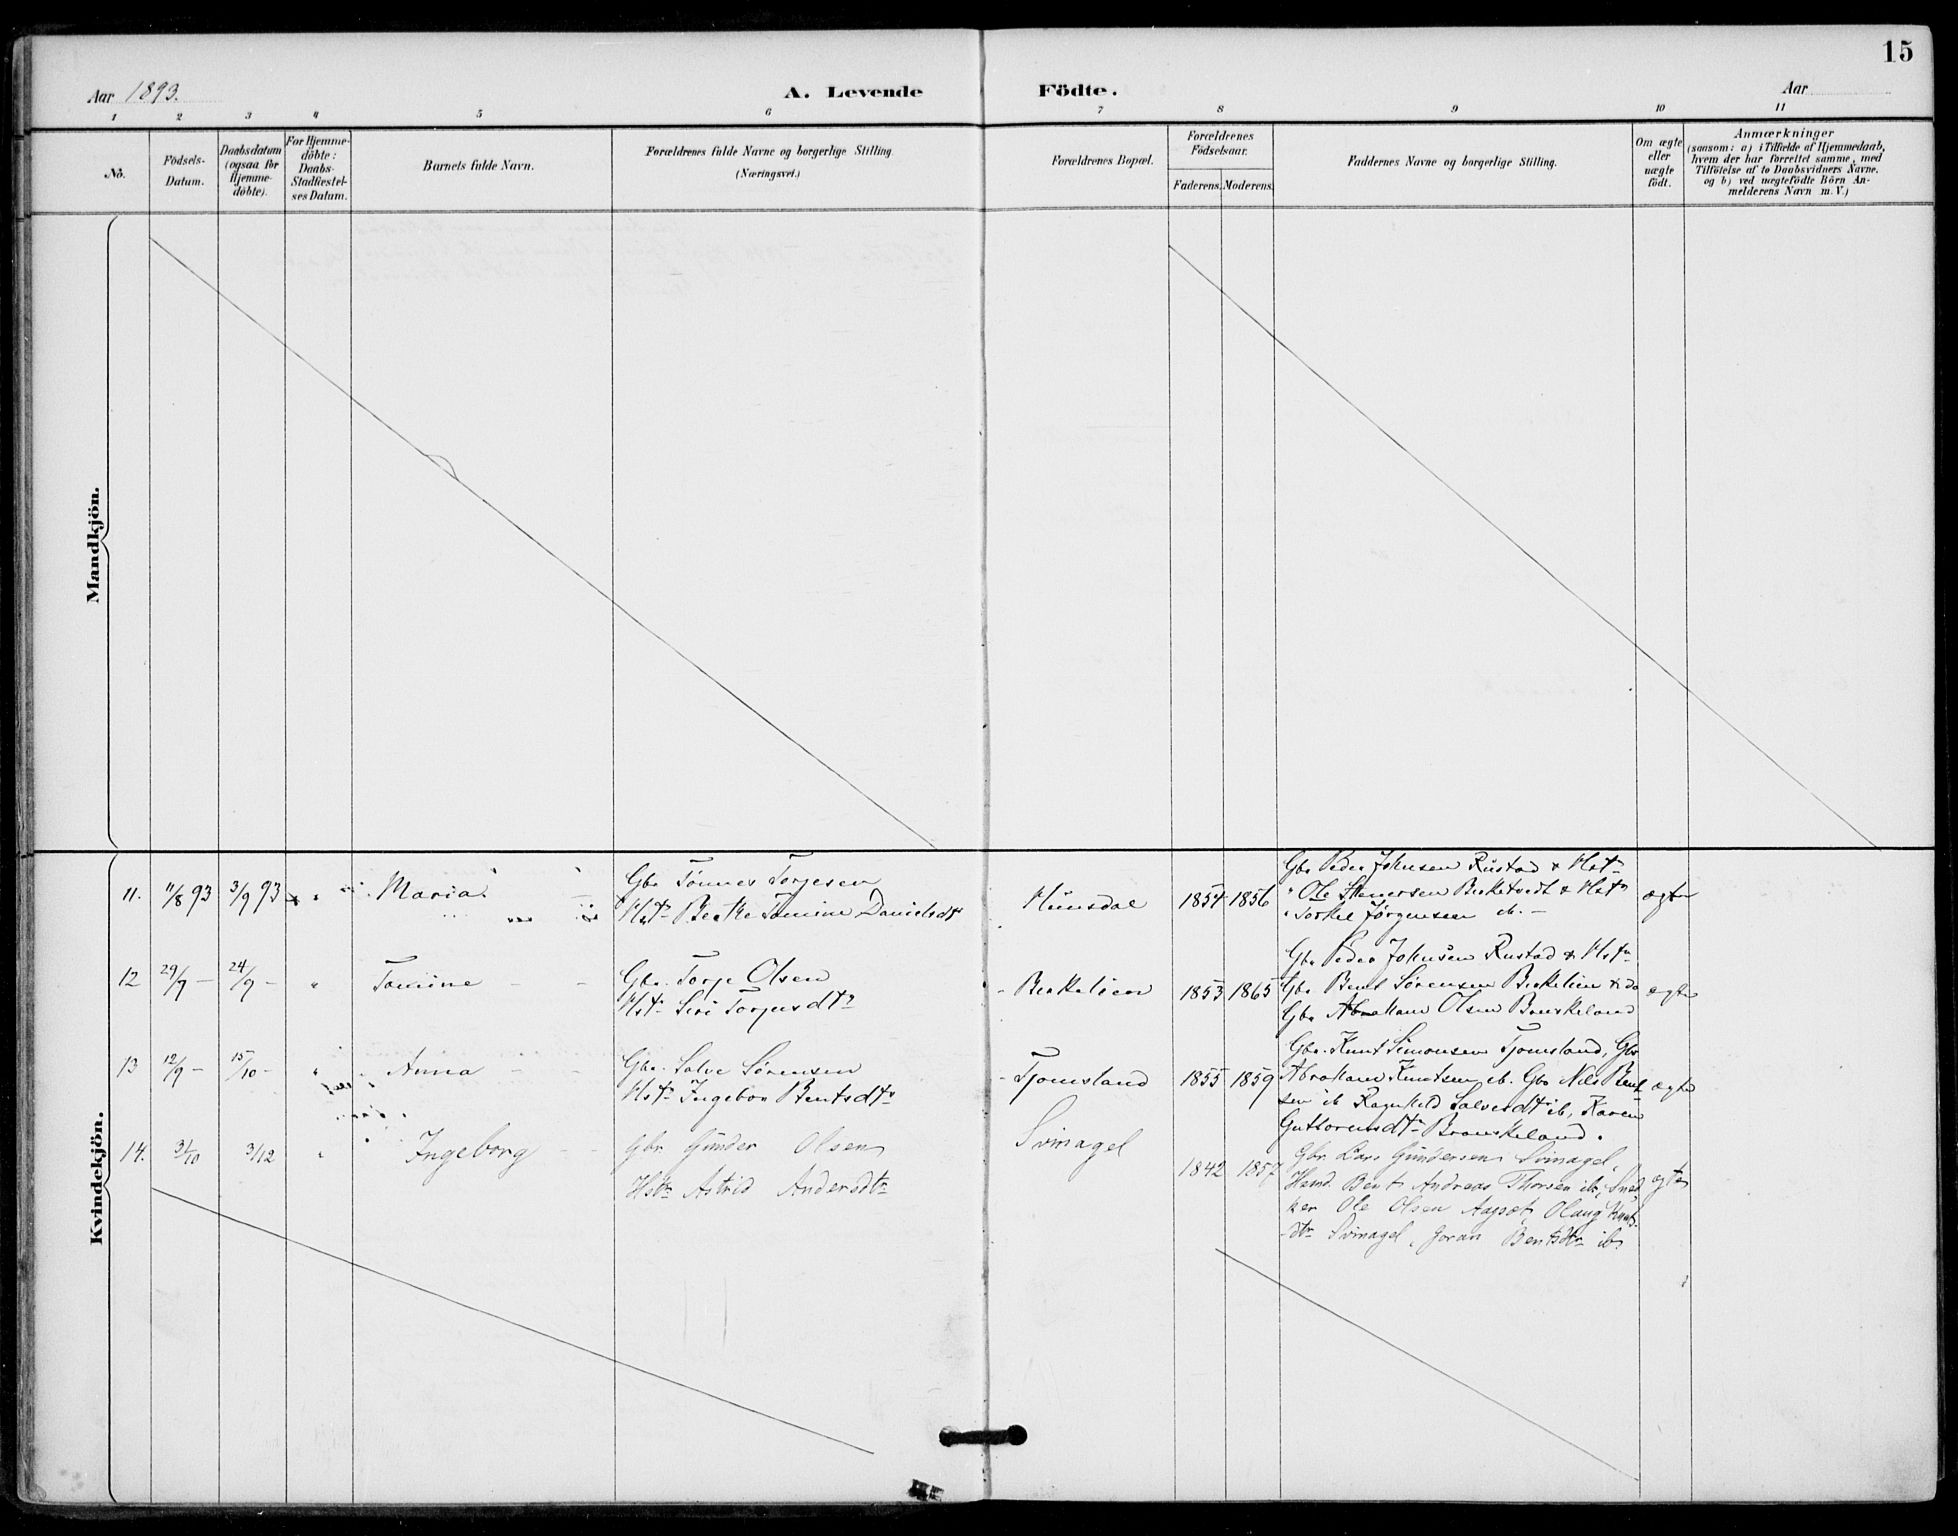 15
Aar 1893. A. Levende Födte. Aar
1 2 3 4 5 6 7 8 9 10 11
No. Födsels-Datum. Daabsdatum (ogsaa for Hjemme-döbte). For Hjemme-döbte: Daabs-Stadfæstel-ses Datum. Barnets fulde Navn. Forældrenes fulde Navne og borgerlige Stilling. (Næringsvei.) Forældrenes Bopæl. Forældrenes Födselsaar. Faderens. Moderens. Faddernes Navne og borgerlige Stilling. Om ægte eller uægte födt. Anmærkninger (saasom: a) i Tilfælde af Hjemmedaab, hvem der har forrettet samme, med Tilföielse af to Daabsvidners Navne, og b) ved uægtefödte Börn An-melderens Navn m. V.)
Mandkjön.
Kvindekjön.
11. 11/8 93 3/9 93 " Maria Gbr Tønnes Torjesen
Hstr Berthe Tomine Danielsdtr
Hunsdal 1854 1856
Gbr Peder Johnsen Rustad & Hstr
" Ole Stenersen Birketvedt & Hstr
" Torkel Jørgensen ib. -
ægte
12 29/7 - 24/9 - " Tomine - - Gbr. Torje Olsen
Hstr Siri Torjusdtr
Birkelien 1853 1865
Gbr Peder Johnsen Rustad & Hstr
Gbr Bent Sørensen Birkelien & do
Gbr Abraham Olsen Brunskeland
ægte
13 12/9 - 15/10 - " Anna - - Gbr. Salve Sørensen
Hstr Ingebor Bentsdtr
Tjomsland 1855 1859
Gbr. Knut Simonsen Tjomsland, Gbr
Abraham Knutsen ib. Gbr Nils Bent
sen ib Ragnhild Salvesdtr ib, Karen
Guttormsdtr Bronskeland.
ægte
14. 31/10 3/12 " Ingeborg - - Gbr. Gunder Olsen
Hstr Astrid Andersdtr
Svinagel 1842 1857
Gbr. Lars Gundersen Svinagel,
Hand. Bent Andreas Thorsen ib, Sned
ker Ole Olsen Aagset, Olaug Knuts
dtr Svinagel, Joran Bentsdtr ib
ægte